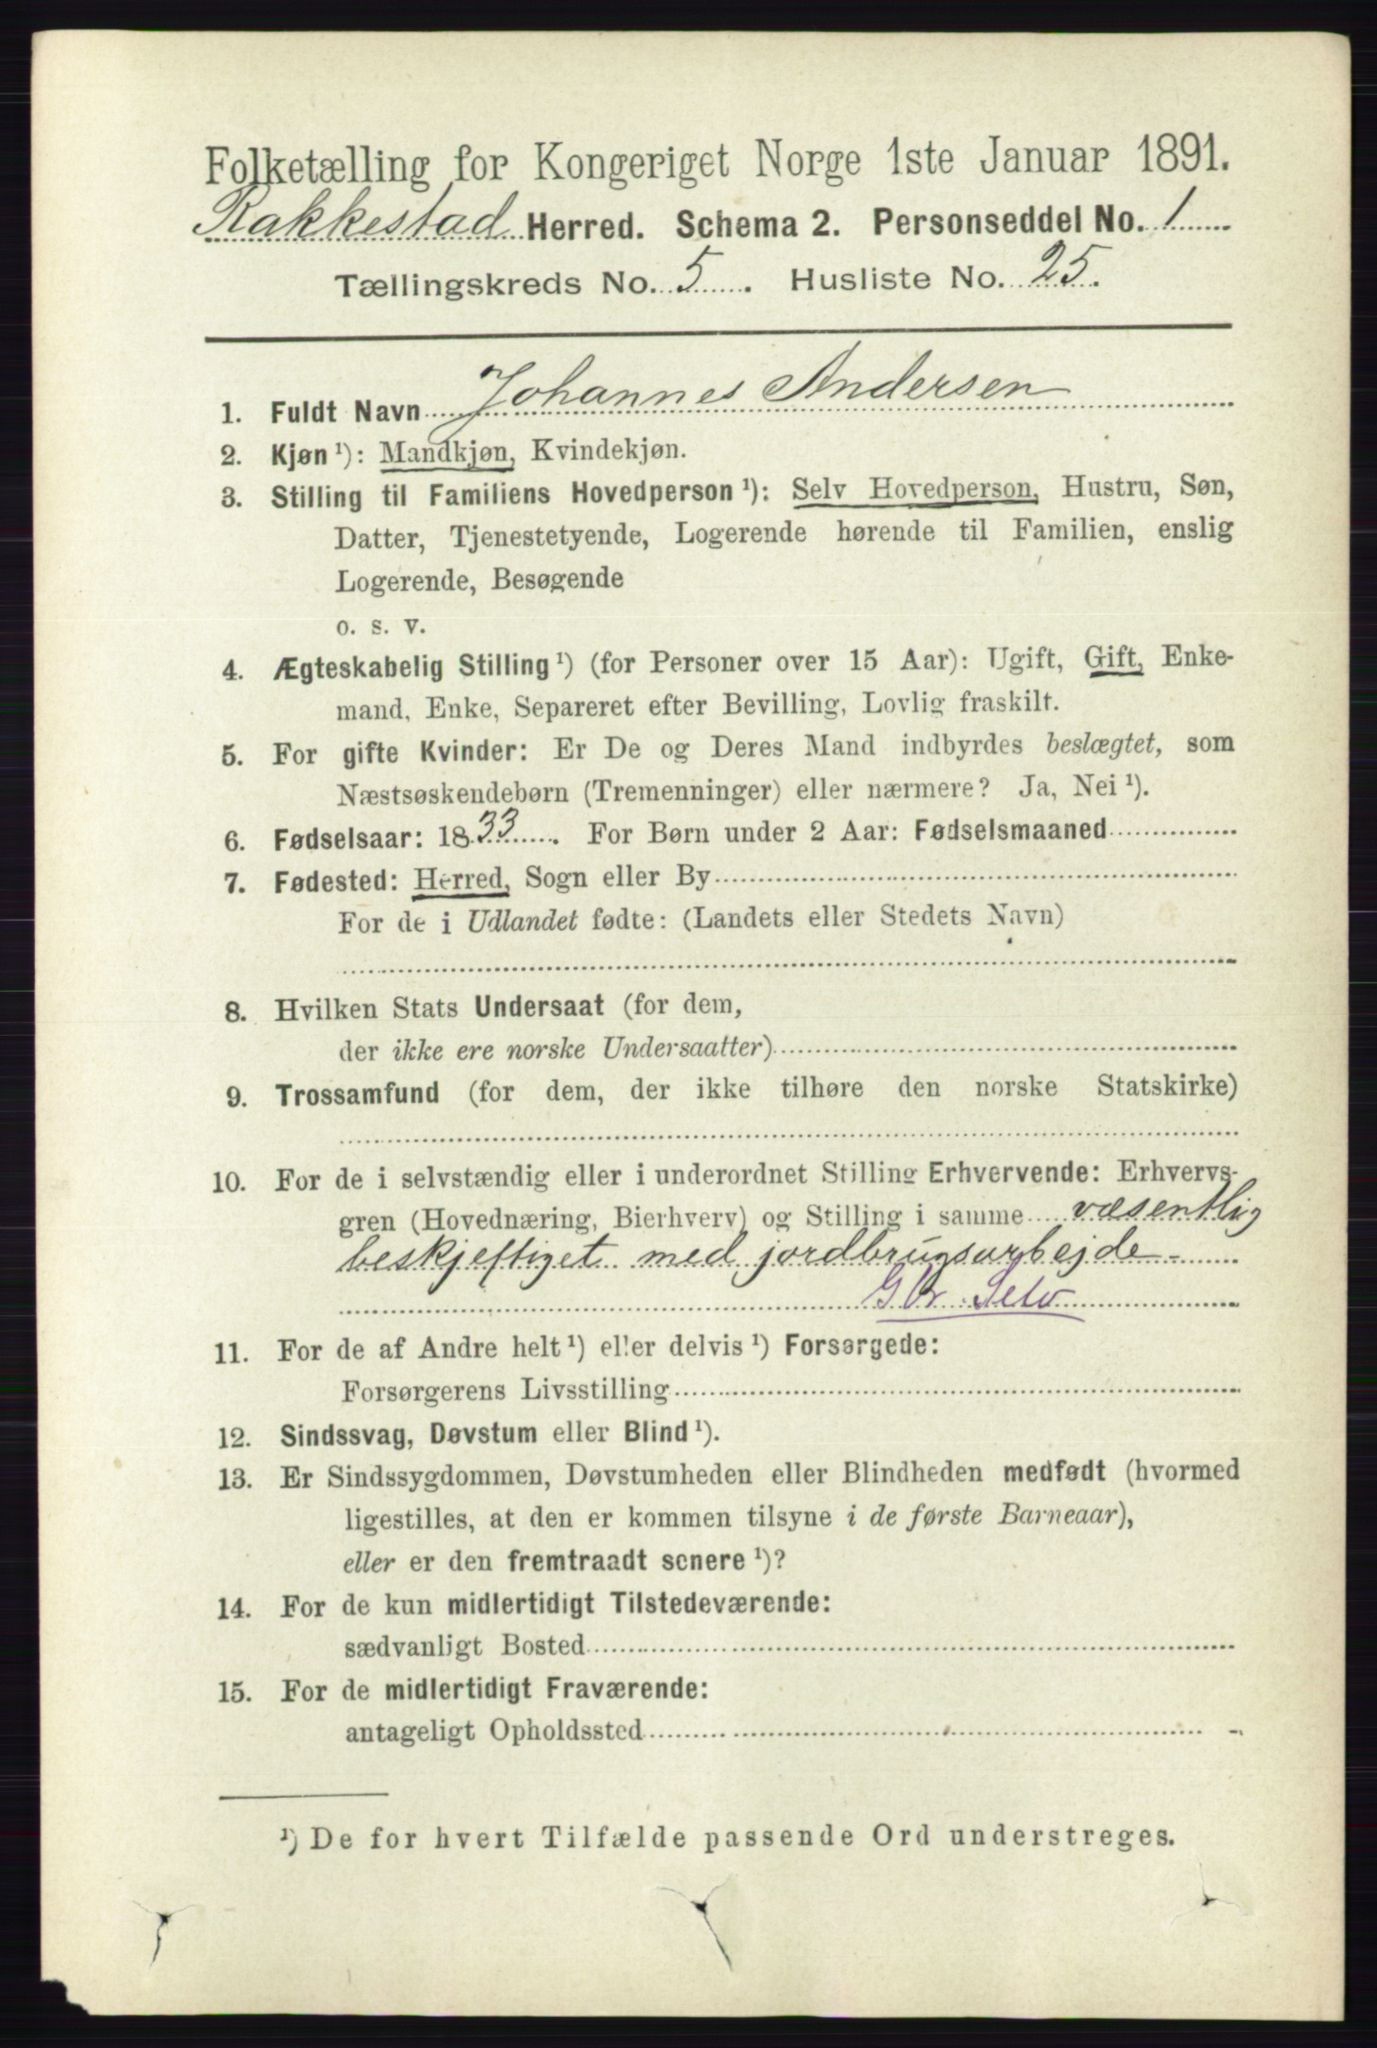 Folketælling for Kongeriget Norge 1ste Januar 1891.
Rakkestad Herred. Schema 2. Personseddel No. 1
Tællingskreds No. 5. Husliste No. 25.
1. Fuldt Navn Johannes Andersen
2. Kjøn¹): Mandkjøn, Kvindekjøn.
3. Stilling til Familiens Hovedperson¹): Selv Hovedperson, Hustru, Søn,
Datter, Tjenestetyende, Logerende hørende til Familien, enslig
Logerende, Besøgende
o. s. v.
4. Ægteskabelig Stilling¹) (for Personer over 15 Aar): Ugift, Gift, Enke-
mand, Enke, Separeret efter Bevilling, Lovlig fraskilt.
5. For gifte Kvinder: Er De og Deres Mand indbyrdes beslægtet, som
Næstsøskendebørn (Tremenninger) eller nærmere? Ja, Nei¹).
6. Fødselsaar: 1833. For Børn under 2 Aar: Fødselsmaaned
7. Fødested: Herred, Sogn eller By
For de i Udlandet fødte: (Landets eller Stedets Navn)
8. Hvilken Stats Undersaat (for dem,
der ikke ere norske Undersaatter)
9. Trossamfund (for dem, der ikke tilhøre den norske Statskirke)
10. For de i selvstændig eller i underordnet Stilling Erhvervende: Erhvervs-
gren (Hovednæring, Bierhverv) og Stilling i samme væsentlig
beskjeftiget med jordbrugsarbejde -
Gbr. Selv
11. For de af Andre helt¹) eller delvis¹) Forsørgede:
Forsørgerens Livsstilling
12. Sindssvag, Døvstum eller Blind¹).
13. Er Sindssygdommen, Døvstumheden eller Blindheden medfødt (hvormed
ligestilles, at den er kommen tilsyne i de første Barneaar),
eller er den fremtraadt senere¹)?
14. For de kun midlertidigt Tilstedeværende:
sædvanligt Bosted
15. For de midlertidigt Fraværende:
antageligt Opholdssted
¹) De for hvert Tilfælde passende Ord understreges.